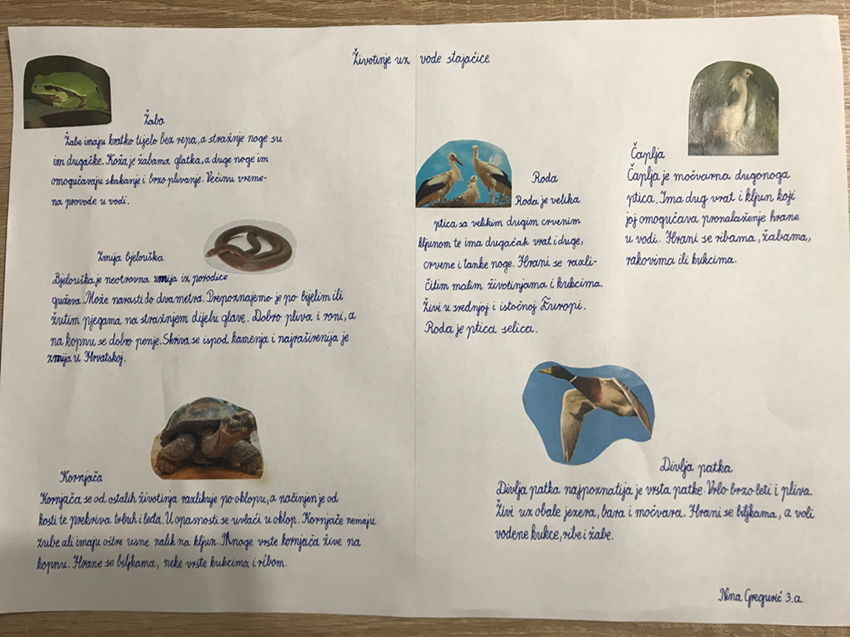 Životinje uz vode stajaćice
Žaba
Žabe imaju kratko tijelo bez repa, a stražnje noge su
im drugačke. Koža je žabama glatka, a druge noge im
omogućavaju skakanje i brzo plivanje. Većinu vreme-
na provode u vodi.
Zmija bjelouška
Bjelouška je neotrovna zmija iz porodice
guževa. Može narasti do dva metra. Prepoznajemo je po bijelim ili
žutim pjegama na stražnjem dijelu glave. Dobro pliva i roni, a
na kopnu se dobro penje. Skriva se ispod kamenja i najraširenija je
zmija u Hrvatskoj.
Kornjača
Kornjača se od ostalih životinja razlikuje po oklopu, a načinjen je od
kosti te prekriva trbuh i leđa. U opasnosti se uvlači u oklop. Kornjače nemaju
zube ali imaju oštre usne nalik na kljun. Mnoge vrste kornjača žive na
kopnu. Hrane se biljkama, neke vrste kukcima i ribom.
Roda
Roda je velika
ptica sa velikim drugim crvenim
kljunom te ima dugačak vrat i duge,
crvene i tanke noge. Hrani se razli-
čitim malim životinjama i kukcima.
Živi u srednjoj i istočnoj Europi.
Roda je ptica selica.
Čaplja
Čaplja je močvarna drugonoga
ptica. Ima drug vrat i kljun koji
joj omogućava pronalaženje hrane
u vodi. Hrani se ribama, žabama,
rakovima ili kukcima.
Divlja patka
Divlja patka najpoznatija je vrsta patke. Vrlo brzo leti i pliva.
Živi uz obale jezera, bara i močvara. Hrani se biljkama, a voli
vodene kukce, ribe i žabe.
Nina Gregurić 3.a